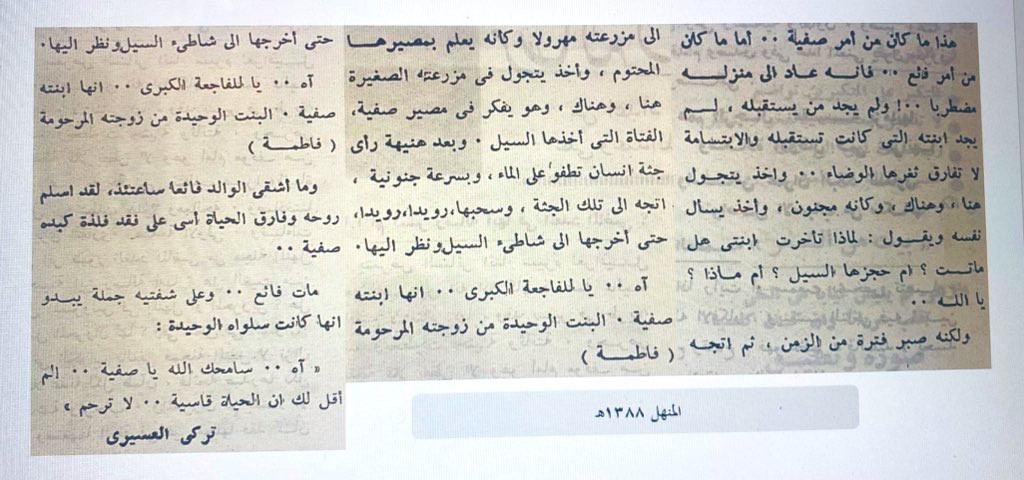 هذا ما كان من أمر صفية ٠٠ أما ما كان
من أمر فائع ٠٠ فانه عاد الى منزله
مضطربا ٠٠! ولم يجد من يستقبله ، لم
يجد ابنته التى كانت تستقبله والابتسامة
لا تفارق ثغرها الوضاء ٠٠ واخذ يتجول
هنا ، وهناك ، وكأنه مجنون ، وأخذ يسال
نفسه ويقول : لماذا تأخرت ابنتى هل
ماتت ؟ ام حجزها السيل ؟ أم ماذا ؟
يا الله ٠٠
ولكنه صبر فترة من الزمن ، ثم اتجه
الى مزرعته مهرولا وكأنه يعلم بمصيرها
المحتوم ، وأخذ يتجول فى مزرعته الصغيرة
هنا ، وهناك ، وهو يفكر فى مصير صفية،
الفتاة التى أخذها السيل ٠ وبعد هنيهة رأى
جثة انسان تطفو على الماء ، وبسرعة جنونية ،
اتجه الى تلك الجثة ، وسحبها،رويدا،رويدا،
حتى أخرجها الى شاطىء السيل ونظر اليها٠
آه ٠٠ يا للفاجعة الكبرى ٠٠ انها ابنته
صفية ٠ البنت الوحيدة من زوجته المرحومة
( فاطمة )
حتى أخرجها الى شاطىء السيل ونظر اليها٠
آه ٠٠ يا للفاجعة الكبرى ٠٠ انها ابنته
صفية ٠ البنت الوحيدة من زوجته المرحومة
( فاطمة )
وما أشقى الوالد فائعا ساعتئذ، لقد اسلم
روحه وفارق الحياة أسى على فقد فلذة كبده
صفية ٠٠
مات فائع ٠٠ وعلى شفتيه جملة يبدو
انها كانت سلواه الوحيدة :
« آه ٠٠ سامحك الله يا صفية ٠٠ الم
أقل لك ان الحياة قاسية ٠٠ لا ترحم »
تركى العسيرى
المنهل ١٣٨٨هـ